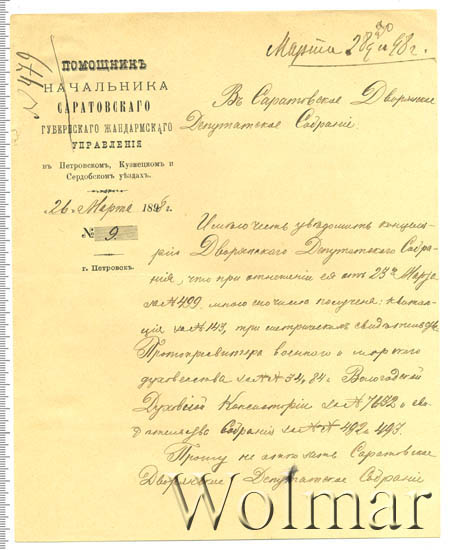 № 479
Марта 28 дня 98 г.
ПОМОЩНИКЪ
НАЧАЛЬНИКА
САРАТОВСКАГО
ГУБЕРНСКАГО ЖАНДАРМСКАГО
УПРАВЛЕНІЯ
въ Петровскомъ, Кузнецкомъ и
Сердобскомъ уѣздахъ.
26 Марта 1898 г.
№ 9.
г. Петровскъ.
Въ Саратовское Дворянское
Депутатское Собраніе.
Имѣю честь увѣдомить канцеля-
рію Дворянскаго Депутатскаго Собра-
нія, что при отношеніи ея отъ 23го Марта
за № 499 мною сполна получена: квитан-
ція за № 143, три метрическихъ свидѣтельства
Протопресвитера военнаго и морского
духовенства за №№ 34, 84 и Вологодской
Духовной Консисторіи за № 7652 и сви-
дѣтельство Собранія за №№ 492 и 493.
Прошу не отказать Саратовское
Дворянское Депутатское Собраніе
Wolmar